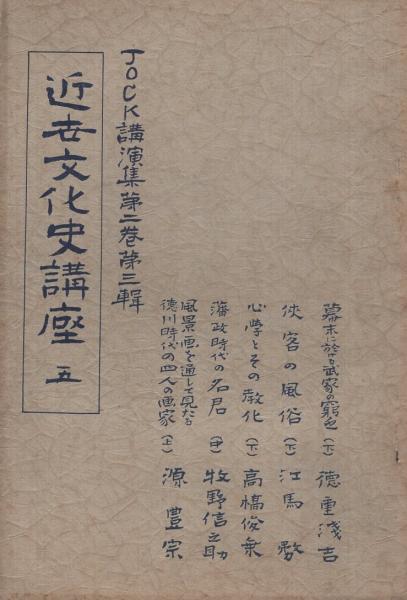 幕末に於ける武家の窮乏（下） 徳重浅吉
侠客の風俗（下） 江馬務
心学とその教化（下） 高橋俊乗
藩政時代の名君（中） 牧野信之助
風景画を通して見たる
徳川時代の四人の画家（上） 源豊宗
JOCK講演集第二巻第三輯
近世文化史講座 五